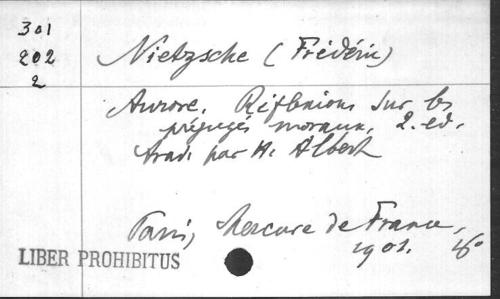 301
202
2
Nietzsche (Frédéric)
Aurore. Réflexions sur les
préjugés moraux, 2. ed.
trad. par H. Albert
Paris, Mercure de France,
1901. 16°
LIBER PROHIBITUS